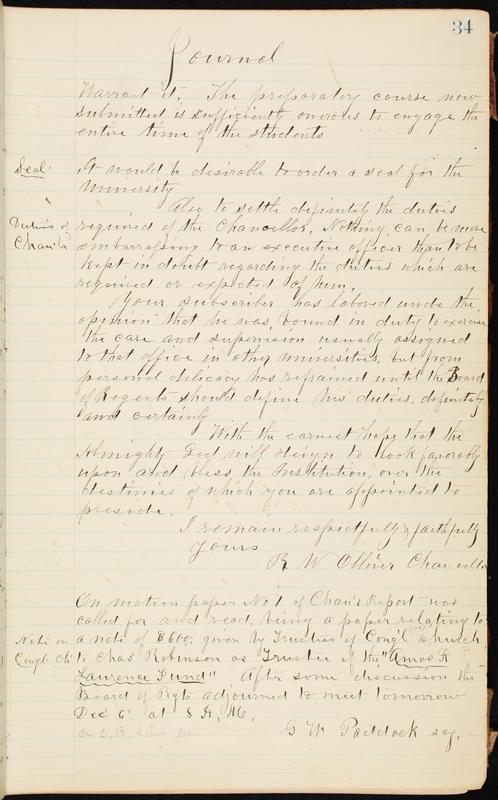 34
Journal
Warrant it. The preparatory course now
submitted is sufficiently onerous to engage the
entire time of the students
Seal
It would be desirable to order a seal for the
University
Duties of
Chan'l'r
Also to settle definitely the duties
required of the Chancellor, Nothing can be more
embarrassing to an executive officer than to be
kept in doubt regarding the duties which are
required or expected of him.
Your subscriber has labored under the
opinion that he was bound in duty to exercise
the care and supervision usually assigned
to that office in other universities, but from
personal delicacy has refrained until the Board
of Regents should define his duties, definitely
and certainly
With the earnest hope that the
Almighty God will deign to look favorably
upon and bless the Institution, over the
destinies of which you are appointed to
preside.
I remain respectfully & faithfully
Yours
R W Olliver Chancellor
On motion paper No 1 of Chan's Report was
called for and read, being a paper relating to
Note on
Congl Ch.
a note of $600. given by Trustees of Cong'l Church
to Chas Robinson as Trustee of the "Amos A
Lawrence Fund" After some discussion the
Board of Rgts adjourned to meet tomorrow
Dec 6" at 8 A, M,
G W Paddock sec'y,